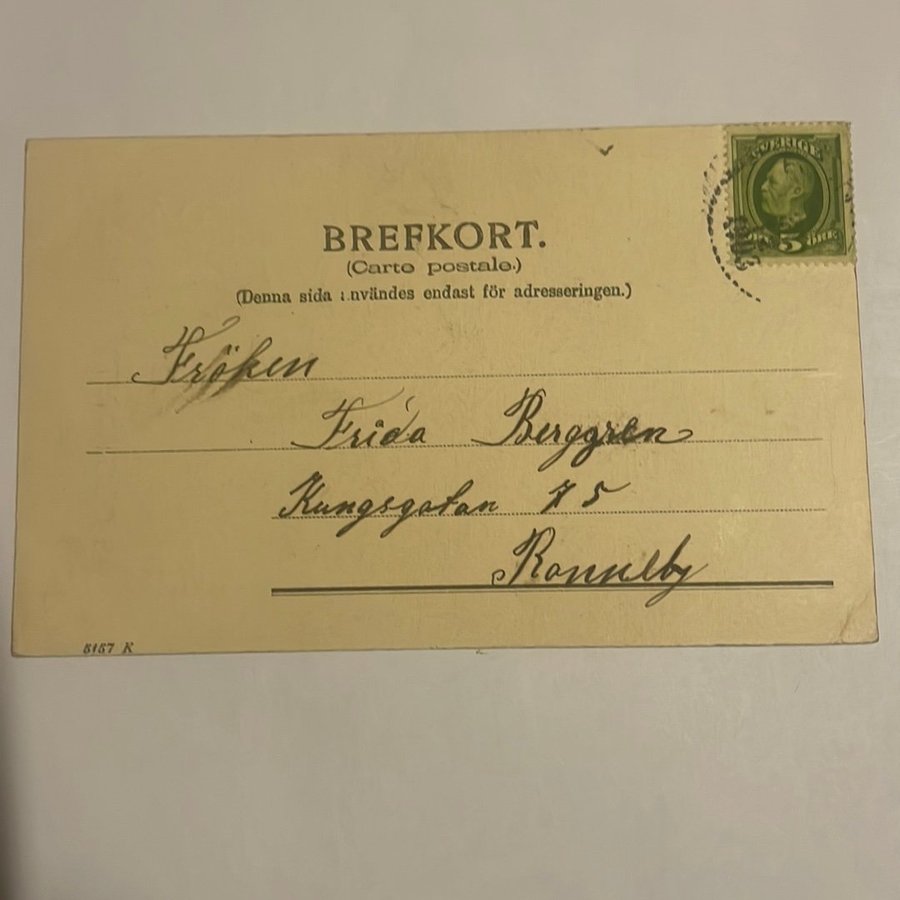 BREFKORT.
(Carte postale.)
(Denna sida användes endast för adresseringen.)
SVERIGE
5 ÖRE
Fröken
Frida Berggren
Kungsgatan 75
Ronneby
5157 K